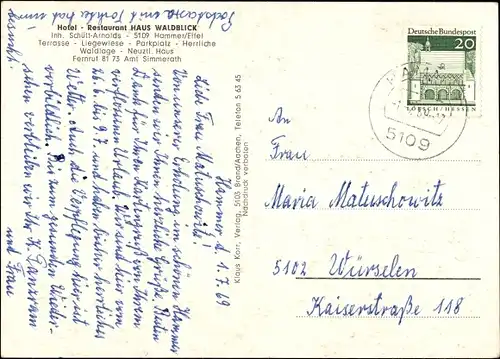 Hotel - Restaurant HAUS WALDBLICK
Inh. Schütt-Arnolds - 5109 Hammer/Eifel
Terrasse - Liegewiese - Parkplatz - Herrliche
Waldlage - Neuztl. Haus
Fernruf 81 73 Amt Simmerath
Hammer d. 1.7.69
Liebe Frau Matuschowitz!
Von unserer Erholung im schönen Hammer
senden wir Ihnen herzliche Grüße. Besten
Dank für Ihren Kartengruß von Ihrem
verflossenen Urlaub. Wir sind hier vom
bis 6. 9.7. und haben bisher herrliches
Wetter. Auch die Verpflegung hier ist
vorbildlich. Bis zum gesunden Wieder-
sehen verbleiben wir Ihr K. Panzram
und Frau
besucht.
Klaus Karr, Verlag, 5103 Brand/Aachen, Telefon 5 63 45
Nachdruck verboten
Deutsche Bundespost
20
LORSCH/HESSEN
5109
An
Frau
Maria Matuschowitz
5102 Würselen
Kaiserstraße 118